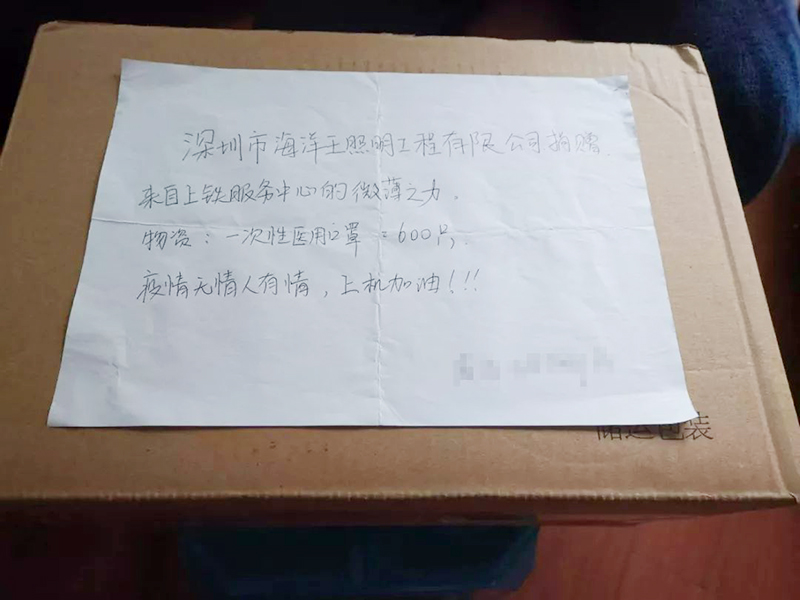 深圳市海洋王照明工程有限公司捐赠.
来自上铁服务中心的微薄之力.
物资:一次性医用口罩=600只.
疫情无情人有情,上机加油!!!
储运包装